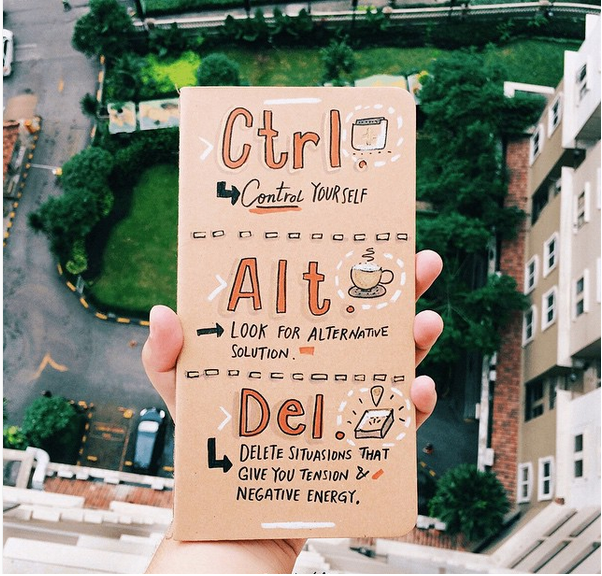 Ctrl.
Control YOURSELF
Alt.
LOOK FOR ALTERNATIVE
SOLUTION.
Del.
DELETE SITUASIONS THAT
GIVE YOU TENSION &
NEGATIVE ENERGY.